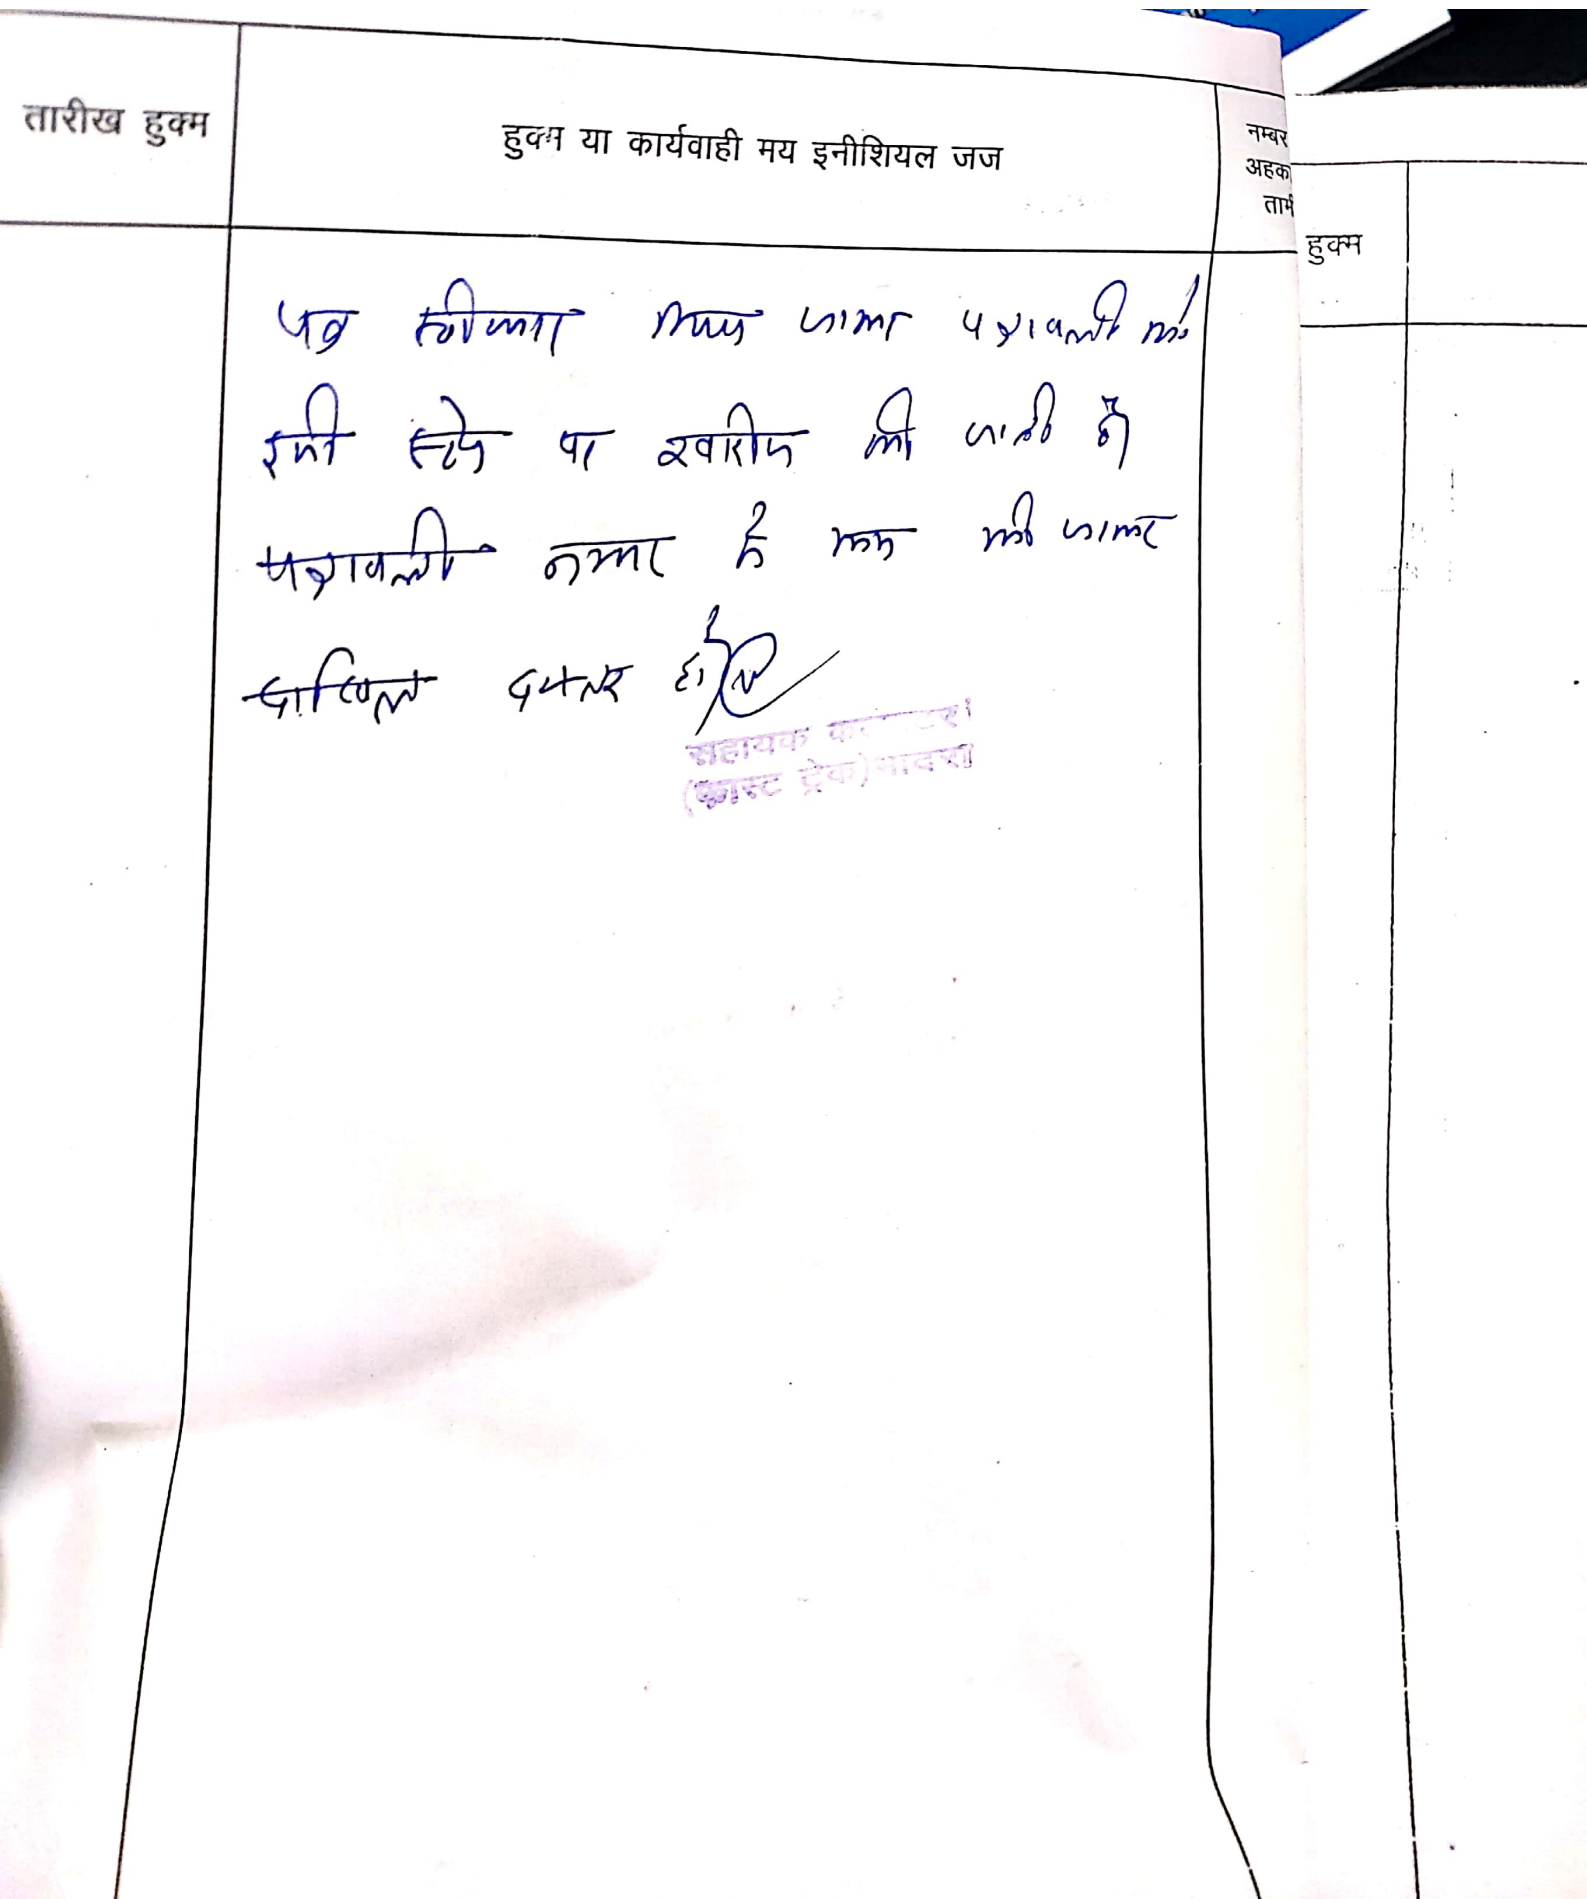 तारीख हुक्म
हुक्म या कार्यवाही मय इनीशियल जज
नम्बर
अहका
तामी
हुक्म
पत्र स्वीकार किया जाकर पत्रावली को
इसी स्टेज पर खारीज की जाती है।
पत्रावली नम्बर से कम की जाकर
दाखिल दफ्तर हो
सहायक कलक्टर
(फास्ट ट्रेक) भादरा